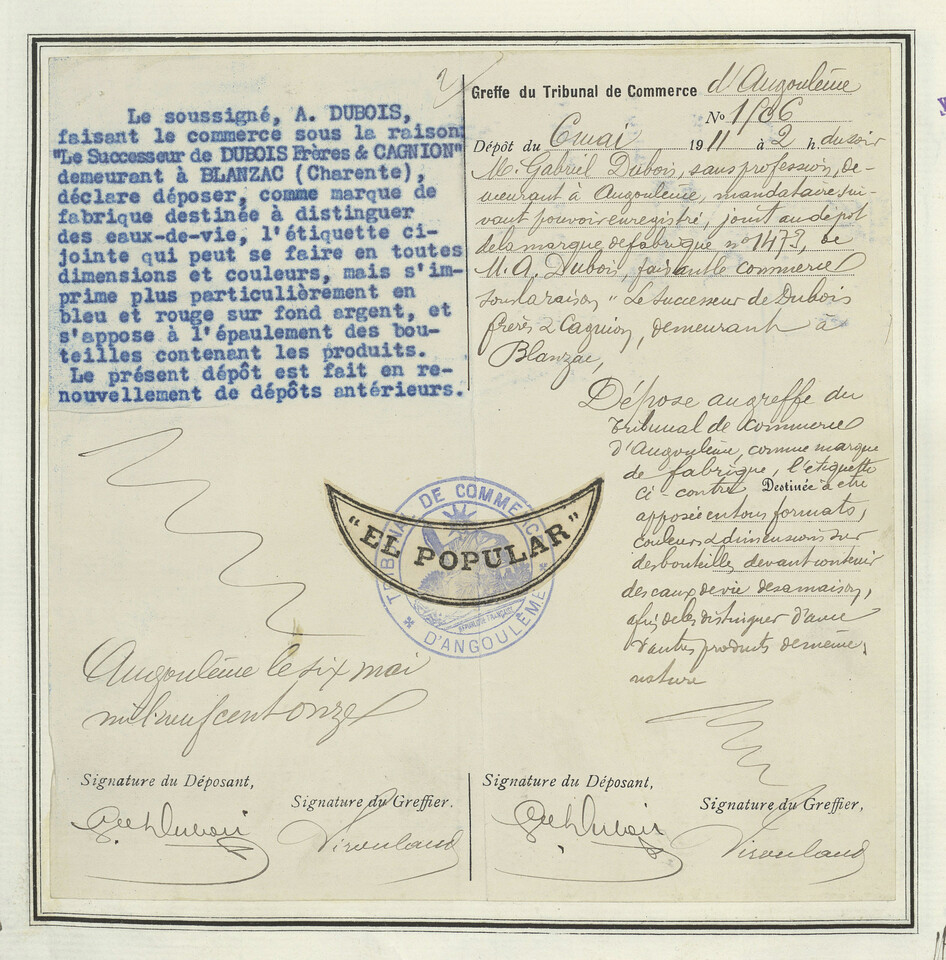 Le soussigné, A. DUBOIS,
faisant le commerce sous la raison
"Le Successeur de DUBOIS Frères & CAGNION"
demeurant à BLANZAC (Charente),
déclare déposer, comme marque de
fabrique destinée à distinguer
des eaux-de-vie, l'étiquette ci-
jointe qui peut se faire en toutes
dimensions et couleurs, mais s'im-
prime plus particulièrement en
bleu et rouge sur fond argent, et
s'appose à l'épaulement des bou-
teilles contenant les produits.
Le présent dépôt est fait en re-
nouvellement de dépôts antérieurs.
Angoulême le six mai
mil neuf cent onze
Signature du Déposant,
Signature du Greffier.
Gel Dubois
Virouland
Greffe du Tribunal de Commerce d'Angoulême
No
Dépôt du 6 mai 1911 à 2 h du soir
M. Gabriel Dubois, sans profession, de-
meurant à Angoulême, mandataire sui-
vant pouvoir enregistré, joint au dépôt
de la marque de fabrique, no 1473, de
M. A. Dubois, faisant le commerce
sous la raison, "Le Successeur de Dubois
frères & Cagnion, demeurant à
Blanzac,
Dépose au greffe du
Tribunal de Commerce
d'Angoulême, comme marque
de fabrique, l'étiquette
ci-contre Destinée à être
apposée en tous formats,
couleurs & dimensions sur
des bouteilles devant contenir
des eaux de vie de sa maison,
afin de les distinguer d'avec
d'autres produits de même
nature
"EL POPULAR"
TRIBUNAL DE COMMERCE
RÉPUBLIQUE FRANÇAISE
D'ANGOULEME
Signature du Déposant,
Signature du Greffier,
Gel Dubois
Virouland